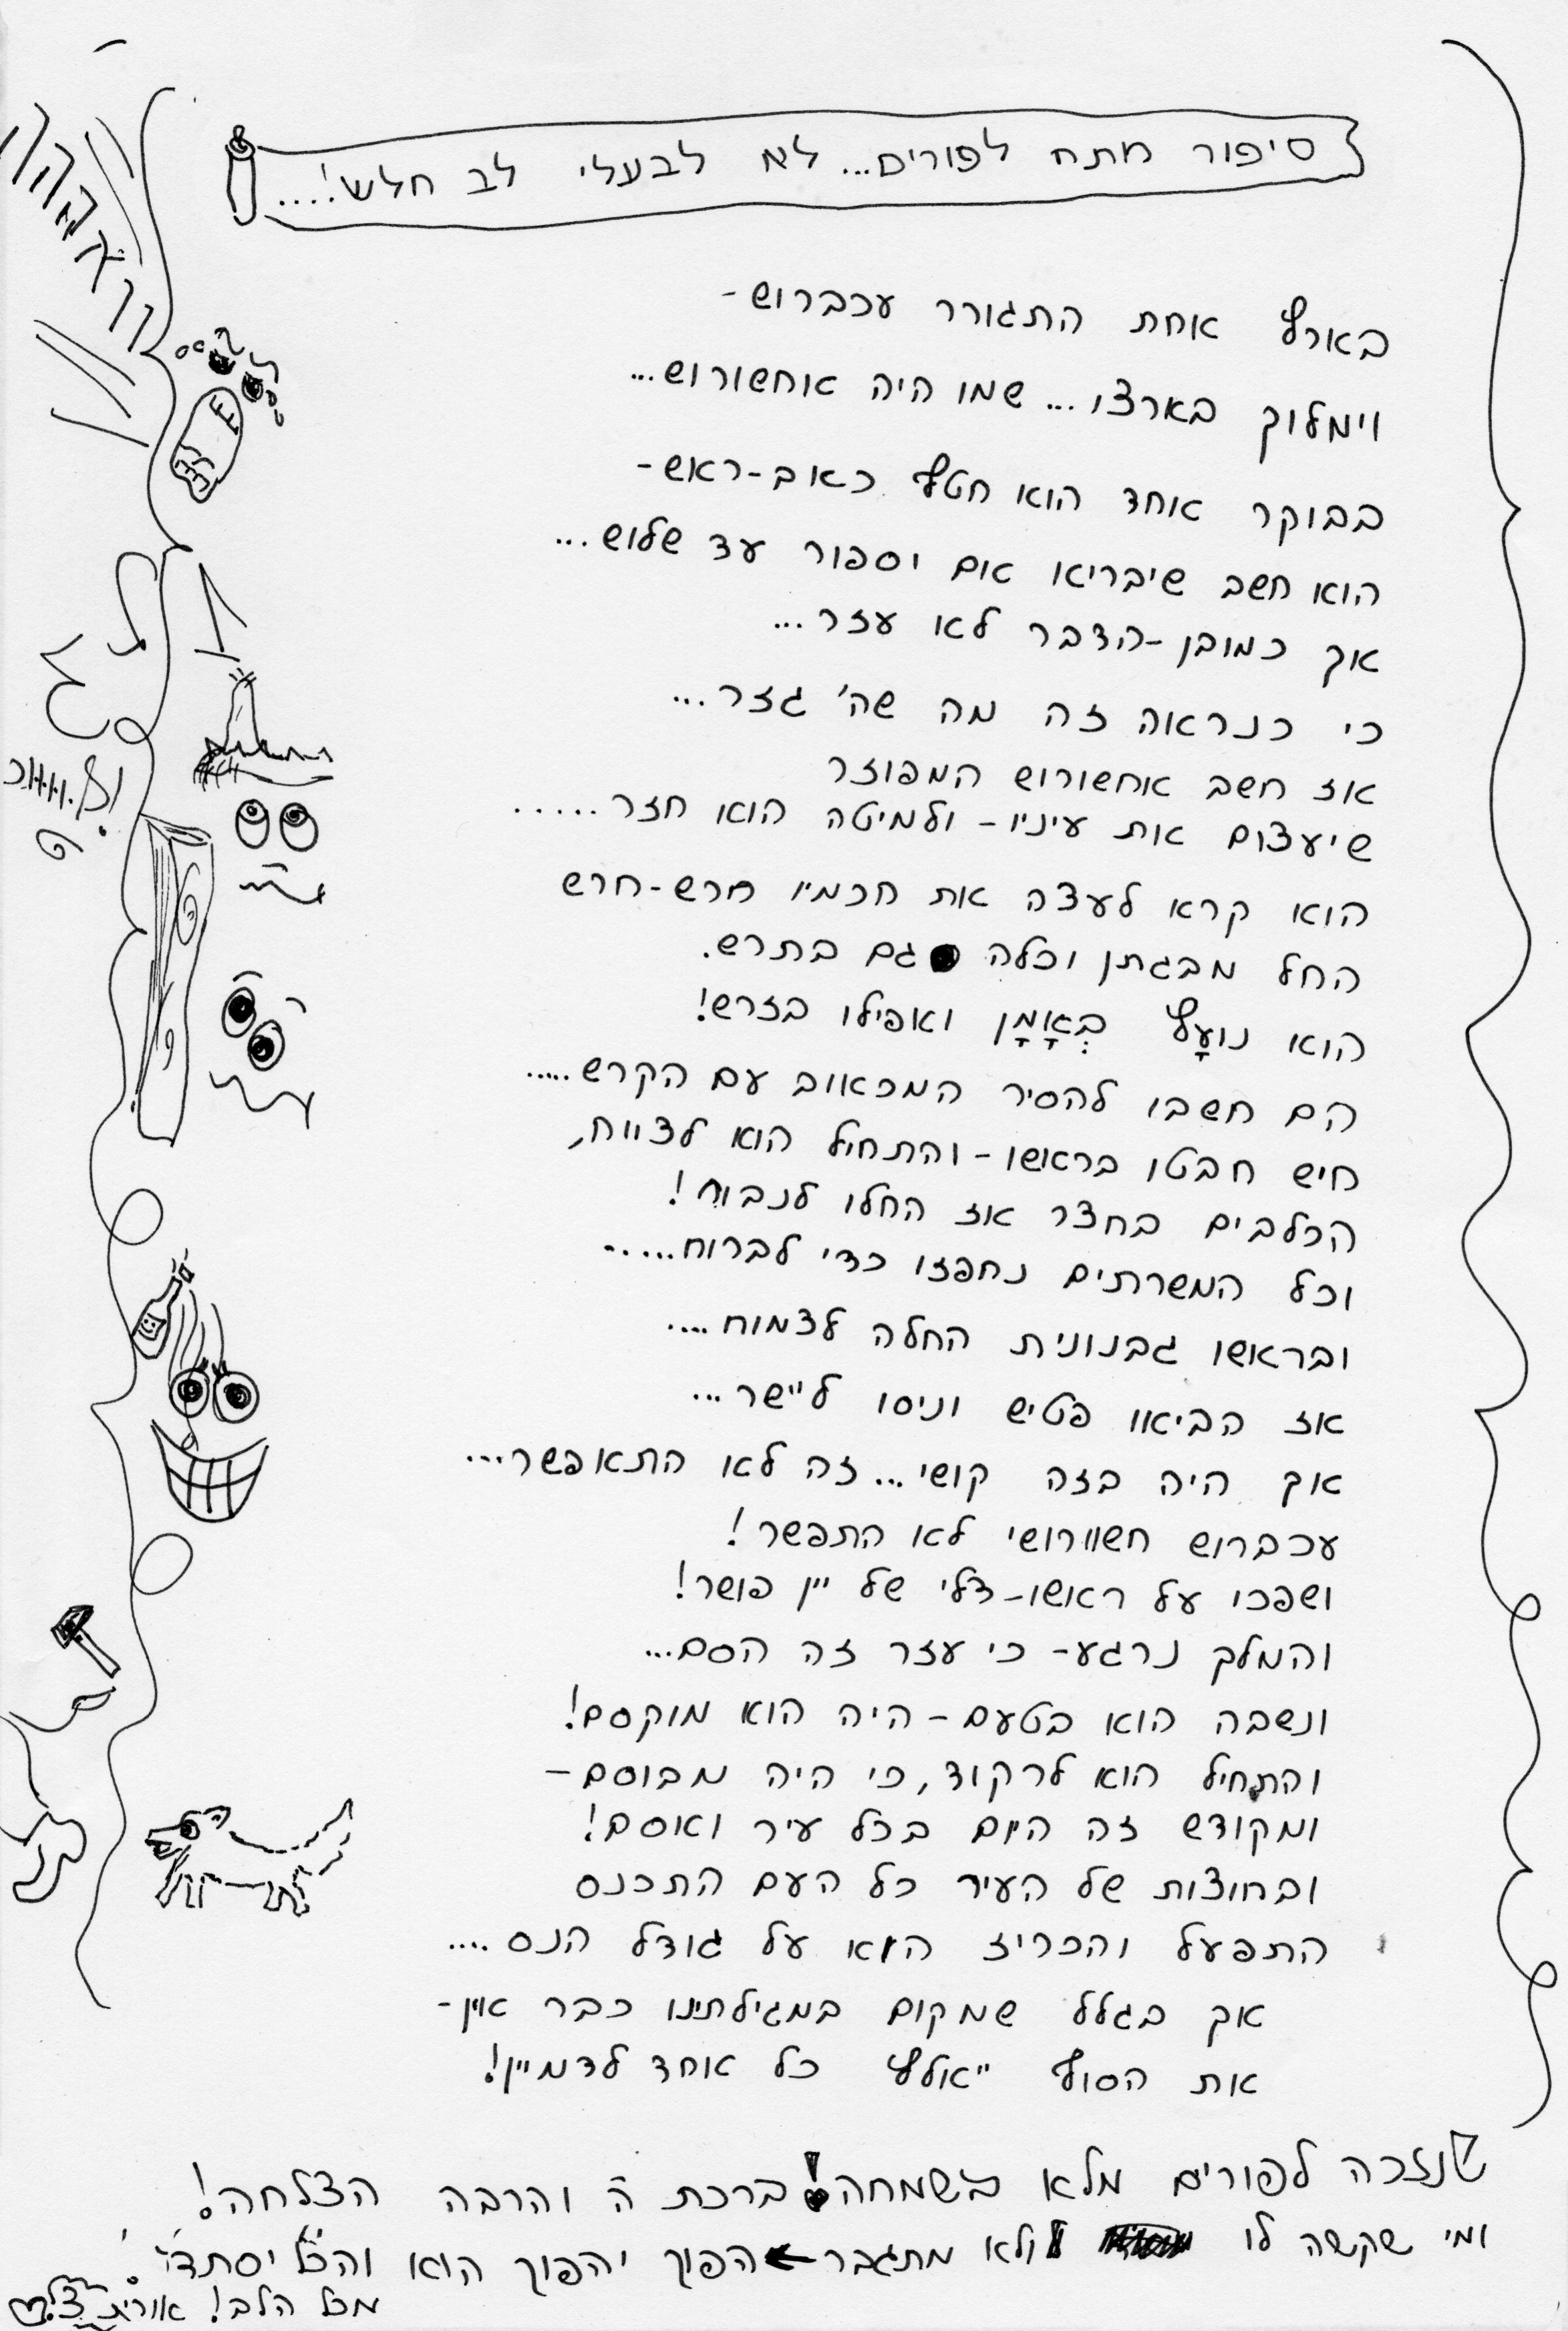 סיפור מתח לפורים... לא לבעלי לב חלש!....
בארץ אחת התגורר עכברוש-
וימלוך בארצו... שמו היה אחשורוש...
בבוקר אחד הוא חטף כאב-ראש-
הוא חשב שיבריא אם יספור עד שלוש...
אך כמובן-הדבר לא עזר...
כי כנראה זה מה שה' גזר...
אז חשב אחשורוש המפוזר
שיעצום את עיניו- ולמיטה הוא חזר.....
הוא קרא לעצה את חכמיו חרש-חרש
החל מבגתן וכלה גם בתרש.
הוא נועָץ בְּאָמָן ואפילו בזרש!
הם חשבו להסיר המכאוב עם הקרש.....
חיש חבטו בראשו-והתחיל הוא לצווח,
הכלבים בחצר אז החלו לנבוח!
וכל המשרתים נחפזו כדי לברוח.....
ובראשו גבנונית החלה לצמוח....
אז הביאו פטיש וניסו ליישר...
אך היה בזה קושי... זה לא התאפשר...
עכברוש חשוורושי לא התפשר!
ושפכו על ראשו-דלי של יין פושר!
והמלך נרגע- כי עזר זה הסם...
ונשבה הוא בטעם-היה הוא מוקסם!
והתחיל הוא לרקוד, כי היה מבוסם-
ומקודש זה היום בכל עיר ואסם!
ובחוצות של העיר כל העם התכנס
התפעל והכריז הוא על גודל הנס....
אך בגלל שמקום במגילתינו כבר אין-
את הסוף ייאלץ כל אחד לדמיין!
שנזכה לפורים מלא בשמחה! ברכת ה' והרבה הצלחה!
ומי שקשה לו ולא מתגבר ← הפוך יהפוך הוא והכל יסתדר!
מכל הלב! אורית